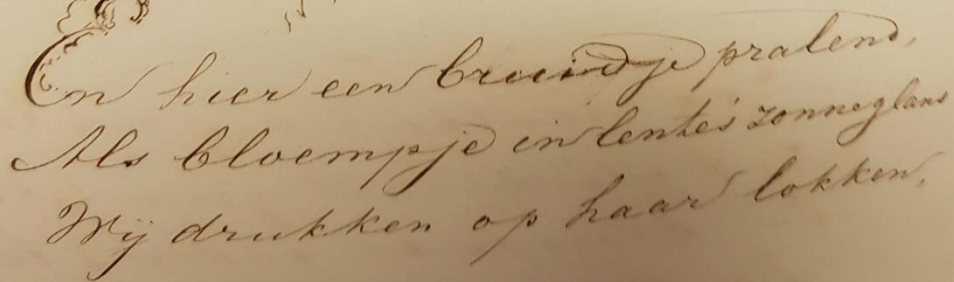 En hier een bruidje pralend,
Als bloempje in lente's zonneglans
Wij drukken op haar lokken,